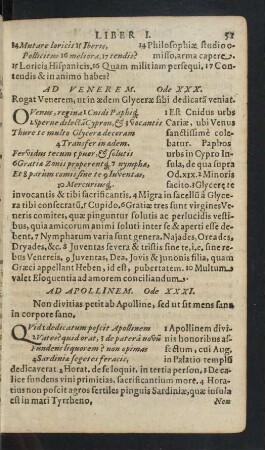 LIBER I. 52
14 Mutare loricis 15 Iberis, 14 Philosophiæ studio o-
Pollicitus 16 meliora, 17 tendis? misso, arma capere
15 Loricis Hispanicis. 16 Quam militiam persequi. 17 Con-
tendis & in animo habes?
AD VENEREM. Ode XXX.
Rogat Venerem, ut in ædem Glyceræ sibi dedicatā veniat.
O Venus, regina 1 Cnidi Paphiq; 1 Est Cnidus urbs
2 Sperne dilectā Cypron, & 3 Vocantis Cariæ, ubi Venus
Thure te multo Glycera decoram sanctissimè cole-
4 Transfer in ædem. batur. Paphos
Fervidus tecum 5 puer, & solutis urbs in Cypro Insu-
6 Gratiæ Zonis properentq; 7 nymphæ, la, de qua supra
Et 8 parum comis sine te 9 Iuventas, Od. XIX. 2 Minoris
10 Mercuriusq;. facito. 3 Glycere te
invocantis & tibi sacrificantis. 4 Migra in sacellū Glyce-
ra tibi consecratum. 5 Cupido. 6 Gratiæ tres sunt virgines Ve-
neris comites, quæ pinguntur solutis ac perlucidis vesti-
bus, quia amicorum animi soluti inter se & aperti esse de-
bent. 7 Nympharum varia sunt genera. Najades, Oreades,
Dryades, &c. 8 Juventas severa & tristis sine te, i.e, sine re-
bus Venereis. 9 Juventas, Dea, Jovis & Junonis filia, quam
Græci appellant Heben, id est, pubertatem. 10 Multum
valet Eloquentia ad amorem conciliandum.
AD APOLLINEM. Ode XXXI.
Non divitias petit ab Apolline, sed ut sit mens sana
in corpore sano.
Quid 1 dedicatum poscit Apollinem 1 Apollinem divi-
2 Vates? quid orat, 3 de paterā novū nis honoribus af-
Fundens liquorem? non opimas fectum, cui Aug.
4 Sardiniæ segetes feracis, in Palatio templū
dedicaverat 2 Horat. de se loquit. in tertia person. 3 De ca-
lice fundens vini primitias, sacrificantium more. 4 Hora-
tius non poscit agros fertiles pinguis Sardiniæ, quæ insula
est in mari Tyrrheno,
Non